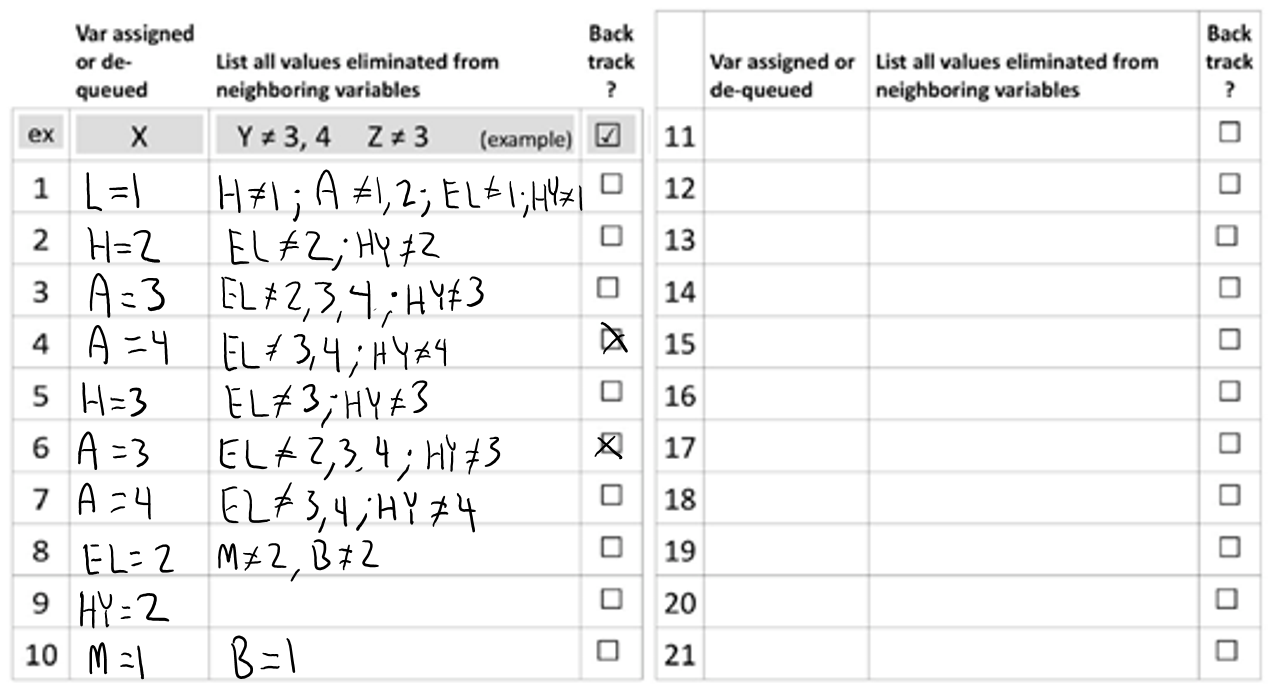 Var assigned or de-queued List all values eliminated from neighboring variables Back track ?
ex X Y ≠ 3, 4 Z ≠ 3 (example) ☑
1 L=1 H≠1; A≠1,2; EL≠1; HY≠1 ☐
2 H=2 EL≠2; HY≠2 ☐
3 A=3 EL≠2,3,4; HY≠3 ☐
4 A=4 EL≠3,4; HY≠4 ☒
5 H=3 EL≠3; HY≠3 ☐
6 A=3 EL≠2,3,4; HY≠3 ☒
7 A=4 EL≠3,4; HY≠4 ☐
8 EL=2 M≠2, B≠2 ☐
9 HY=2 ☐
10 M=1 B=1 ☐
Var assigned or de-queued List all values eliminated from neighboring variables Back track ?
11 ☐
12 ☐
13 ☐
14 ☐
15 ☐
16 ☐
17 ☐
18 ☐
19 ☐
20 ☐
21 ☐